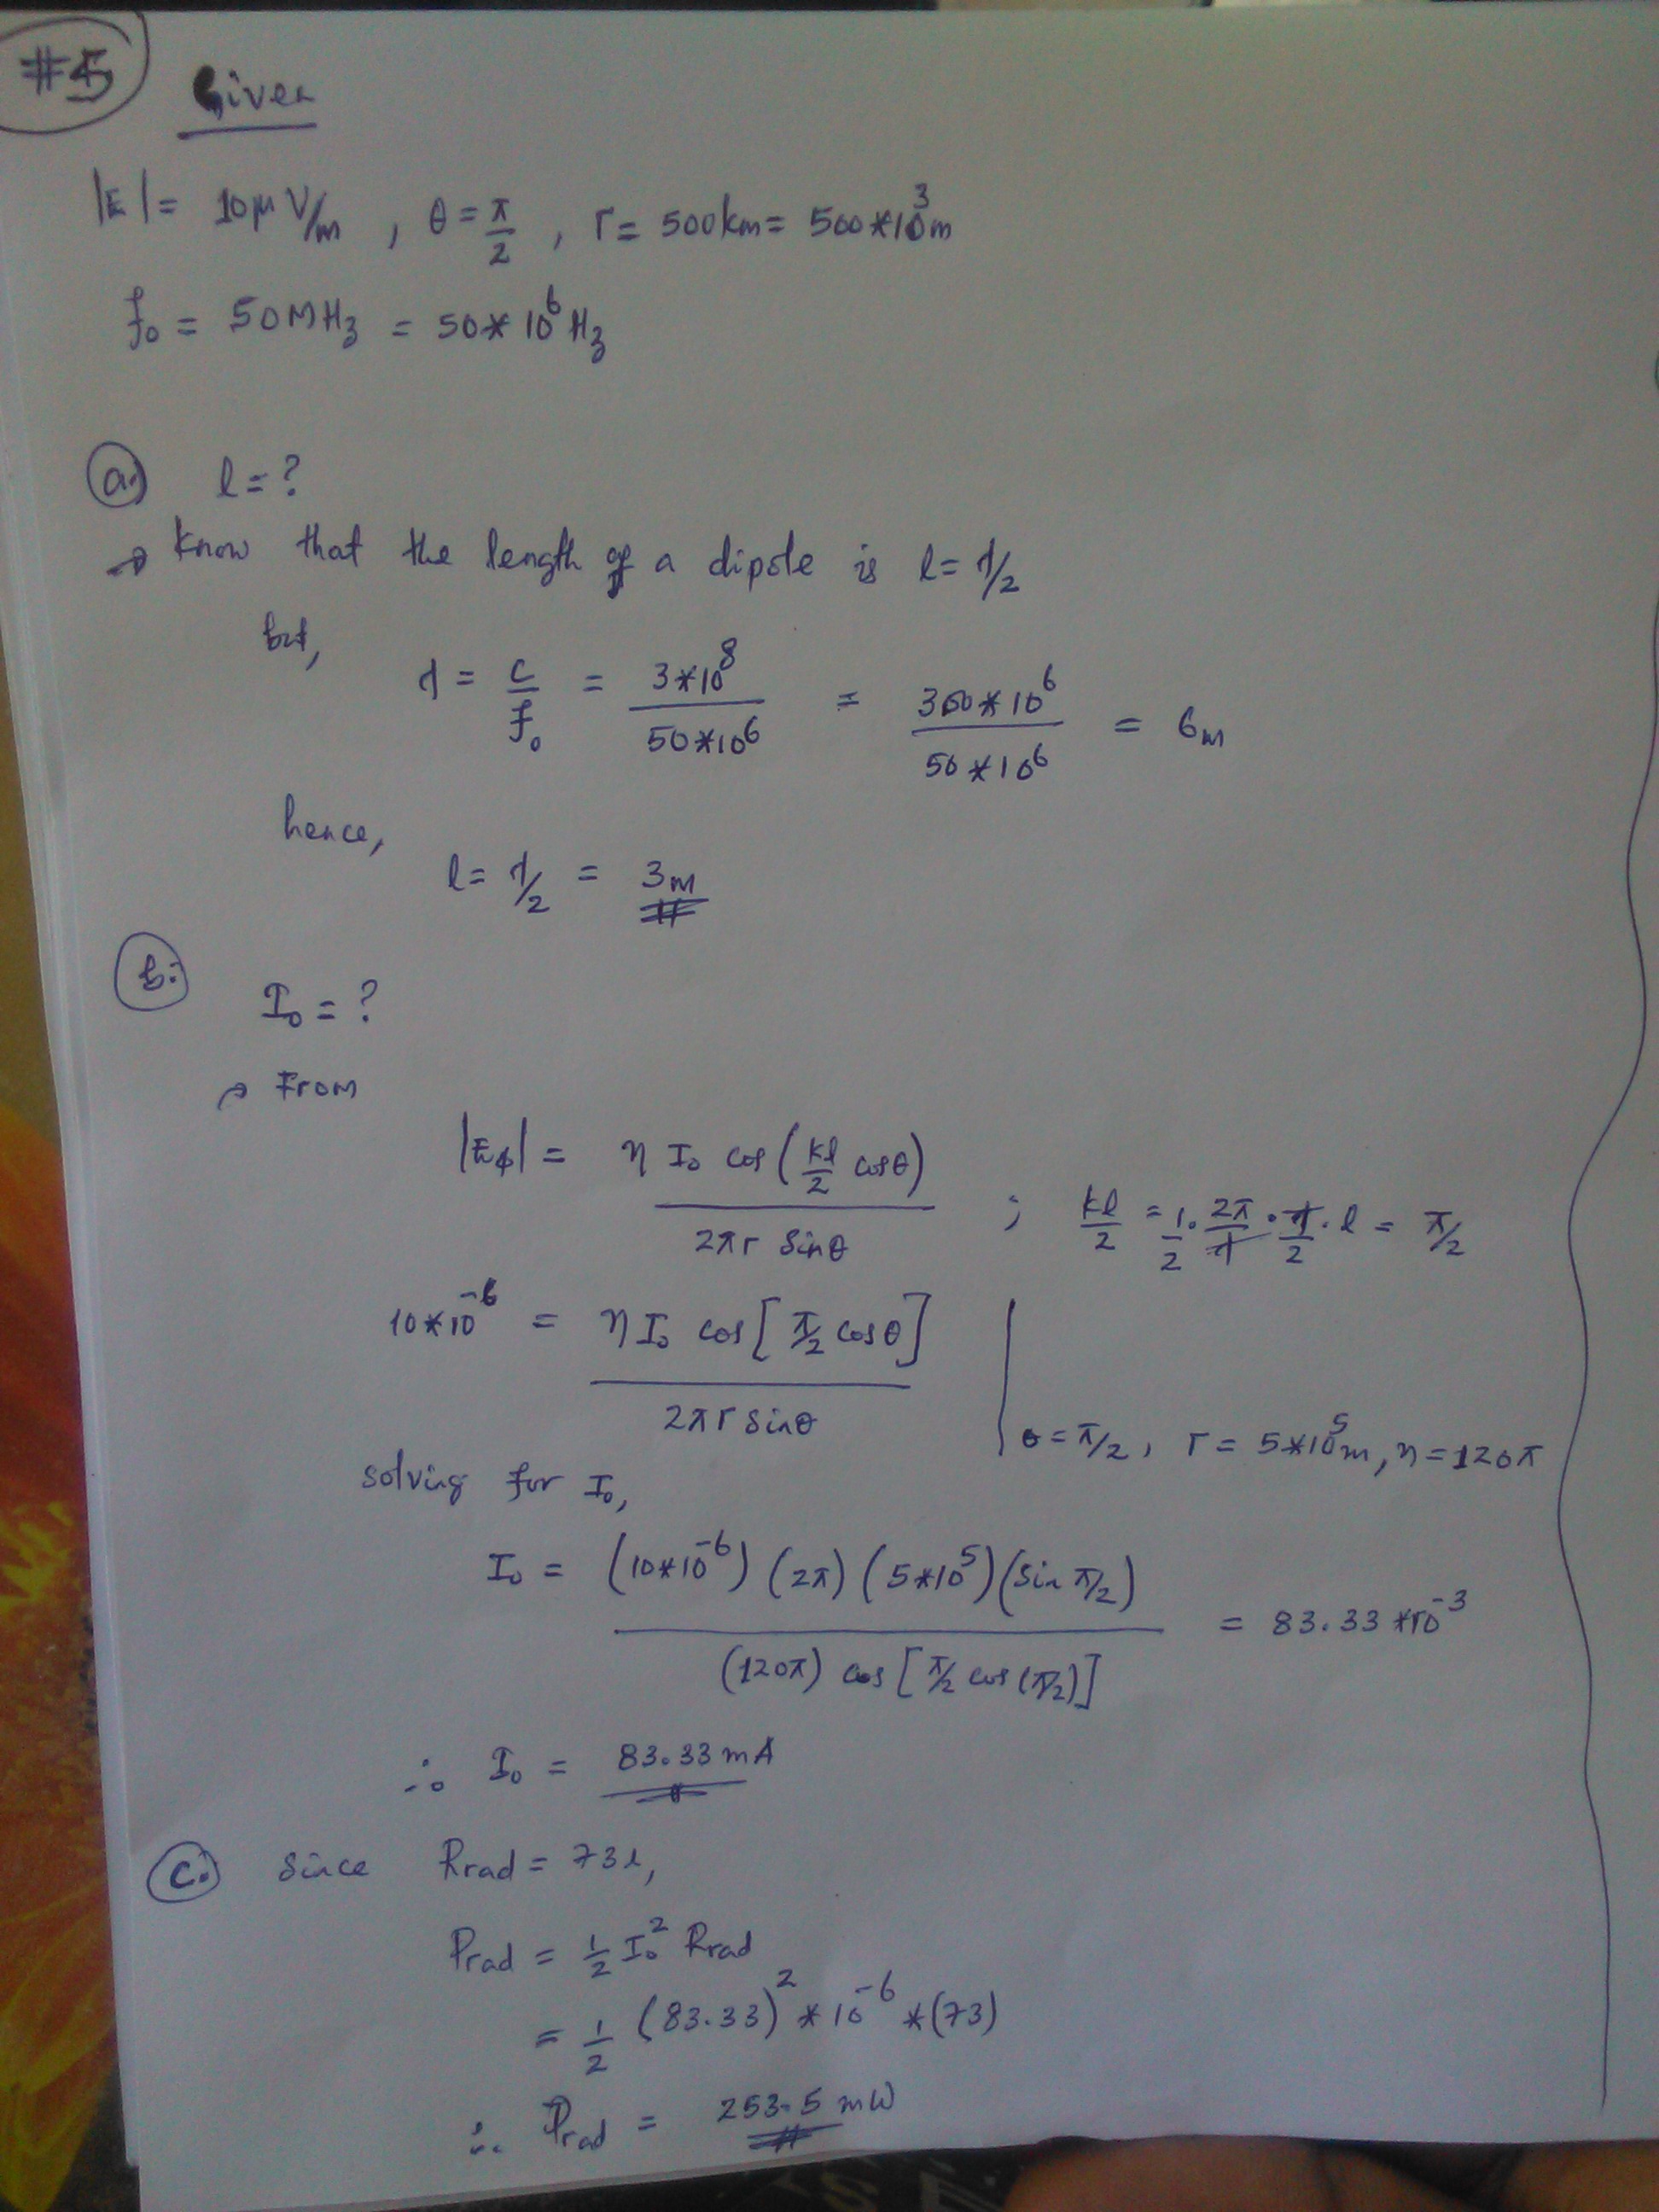 #5
Given
|E| = 10μ V/m , θ = π/2 , r = 500km = 500*10³m
f₀ = 50MHz = 50*10⁶ Hz
a. l = ?
→ know that the length of a dipole is l = λ/2
but,
λ = c/f₀ = 3*10⁸/50*10⁶ = 300*10⁶/50*10⁶ = 6m
hence,
l = λ/2 = 3m
b. I₀ = ?
→ From
|Eφ| = η I₀ cos(kl/2 cosθ) / 2πr sinθ ; kl/2 = 1/2 · 2π/λ · λ/2 · l = π/2
10*10⁻⁶ = η I₀ cos[π/2 cosθ] / 2πr sinθ | θ = π/2, r = 5*10⁵m, η = 120π
solving for I₀,
I₀ = (10*10⁻⁶) (2π) (5*10⁵) (sin π/2) / (120π) cos[π/2 cos(π/2)] = 83.33 *10⁻³
∴ I₀ = 83.33 mA
c. Since Rrad = 73Ω,
Prad = 1/2 I₀² Rrad
= 1/2 (83.33)² * 10⁻⁶ * (73)
∴ Prad = 253.5 mW